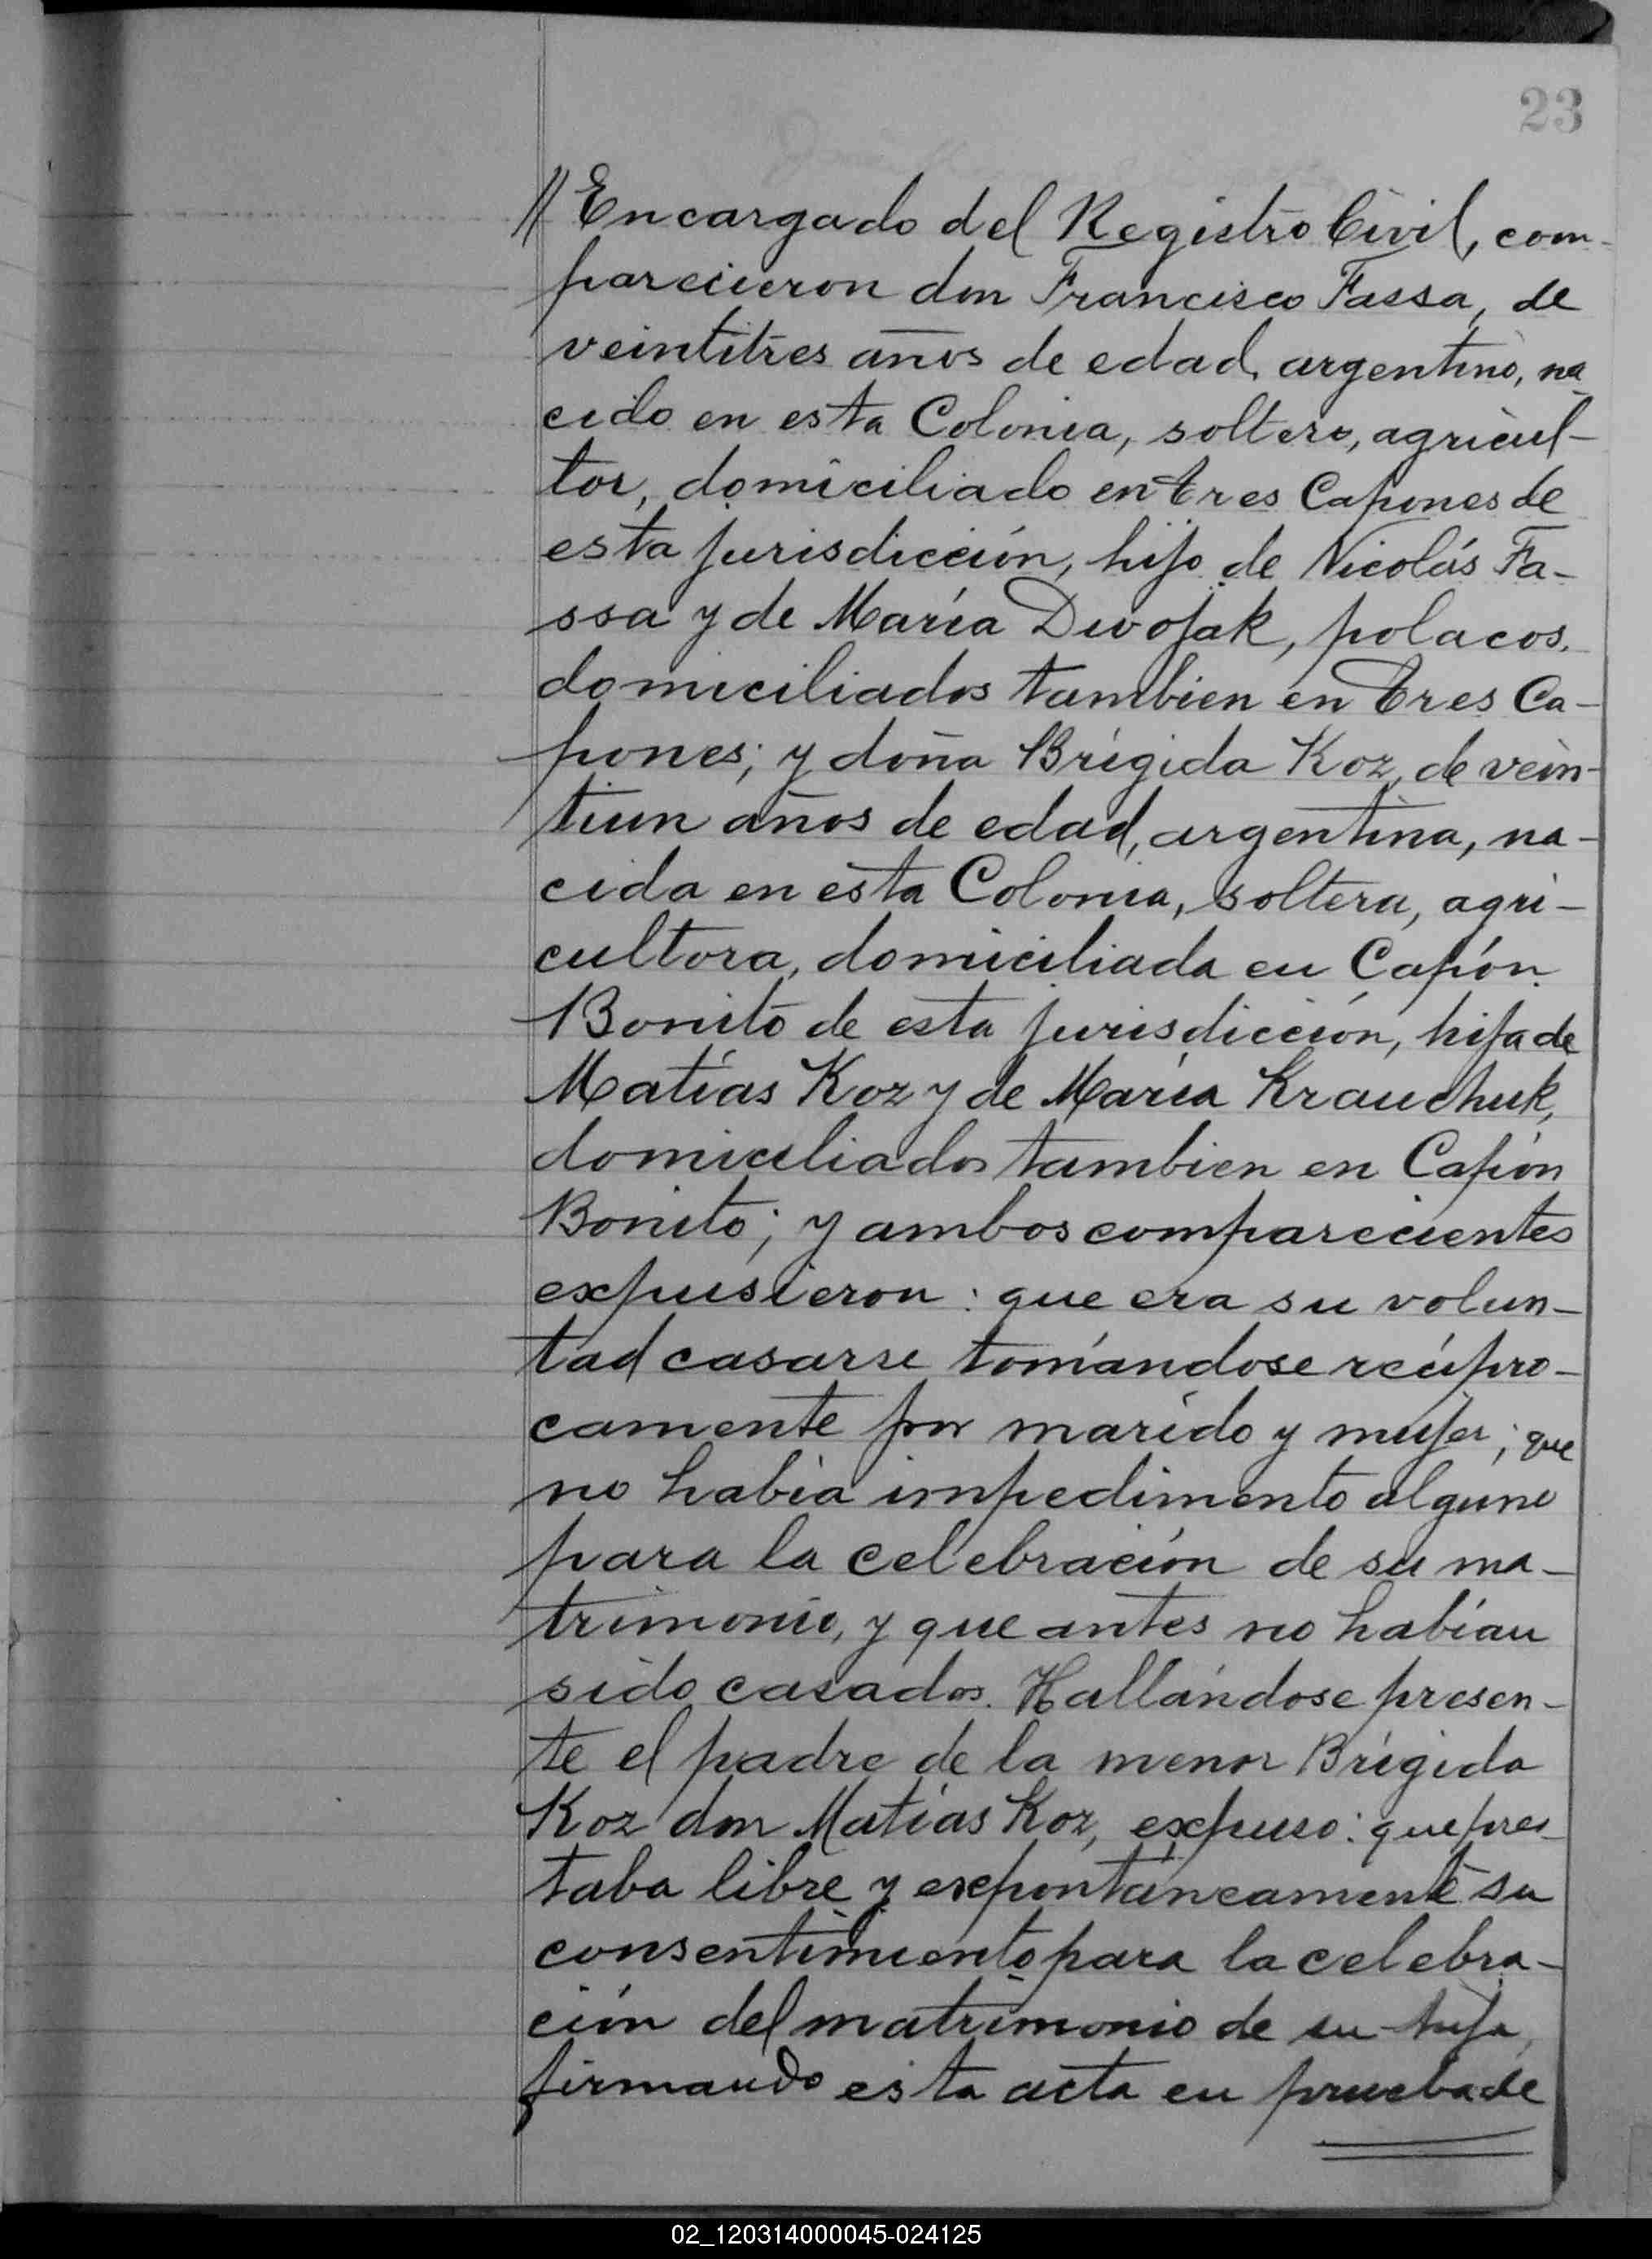 23
// Encargado del Registro Civil, com-
parecieron don Francisco Fassa, de
veintitres años de edad, argentino, na
cido en esta Colonia, soltero, agricul-
tor, domiciliado en Tres Capones de
esta jurisdicción, hijo de Nicolás Fa-
ssa y de María Dwojak, polacos,
domiciliados tambien en Tres Ca-
pones; y doña Brígida Koz, de vein-
tiun años de edad, argentina, na-
cida en esta Colonia, soltera, agri-
cultora, domiciliada en Capón
Bonito de esta jurisdicción, hija de
Matías Koz y de María Krauchuk,
domiciliados tambien en Capón
Bonito; y ambos comparecientes
expusieron: que era su volun-
tad casarse tomándose recípro-
camente por marido y mujer; que
no había impedimento alguno
para la celebración de su ma-
trimonio, y que antes no habían
sido casados. Hallándose presen-
te el padre de la menor Brígida
Koz don Matías Koz, expuso: que pres
taba libre y expontáneamente su
consentimiento para la celebra-
ción del matrimonio de su hija,
firmando esta acta en prueba de
02_120314000045-024125